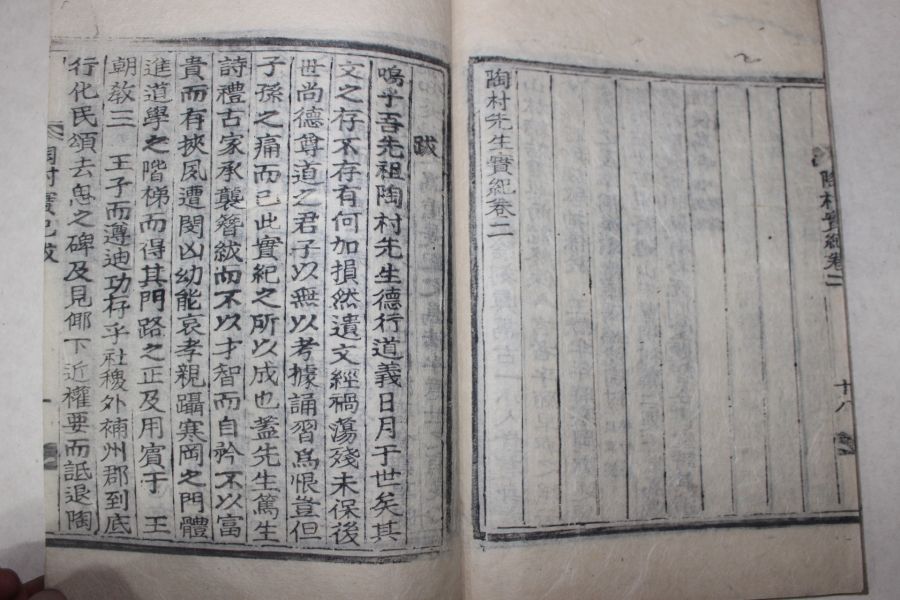 陶村實紀卷二
十八
陶村先生實紀卷二
跋
嗚乎吾先祖陶村先生德行道義日月于世矣其
文之存不存有何加損然遺文經禍蕩殘未保後
世尚德尊道之君子以無以考據誦習爲恨豈但
子孫之痛而已此實紀之所以成也盖先生篤生
詩禮古家承襲簪紱而不以才智而自矜不以富
貴而有挾夙遭閔凶幼能哀孝親躡寒岡之門體
進道學之階梯而得其門路之正及用賓于 王
朝敎三 王子而遵迪功存乎社稷外補州郡到底
行化民頌去思之碑及見鄕下近權要而詆退陶
陶村實紀跋
一